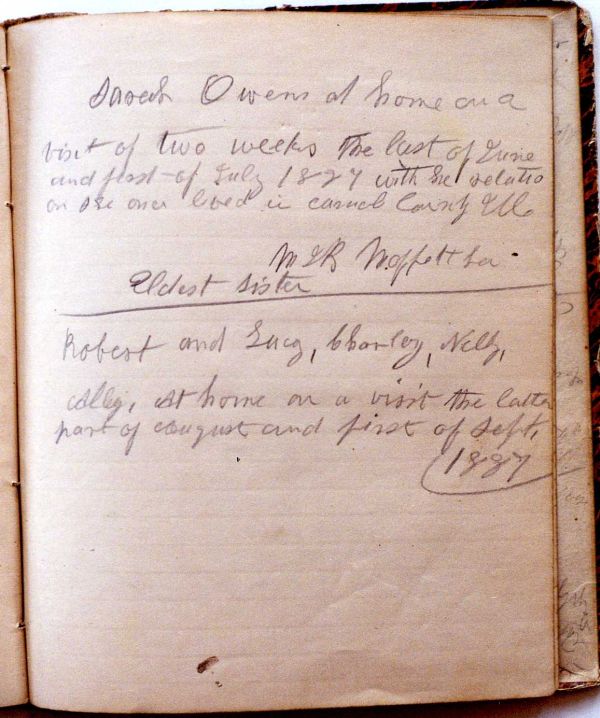 Sarah Owens at home on a
visit of two weeks the last of June
and first of July 1887 with the relatio
on she once lived in County Ills
Moffett her
Eldest Sister
Robert and Lucy, Charley, Nelly,
Ally, at home on a visit the latter
part of august and first of Sept,
1887